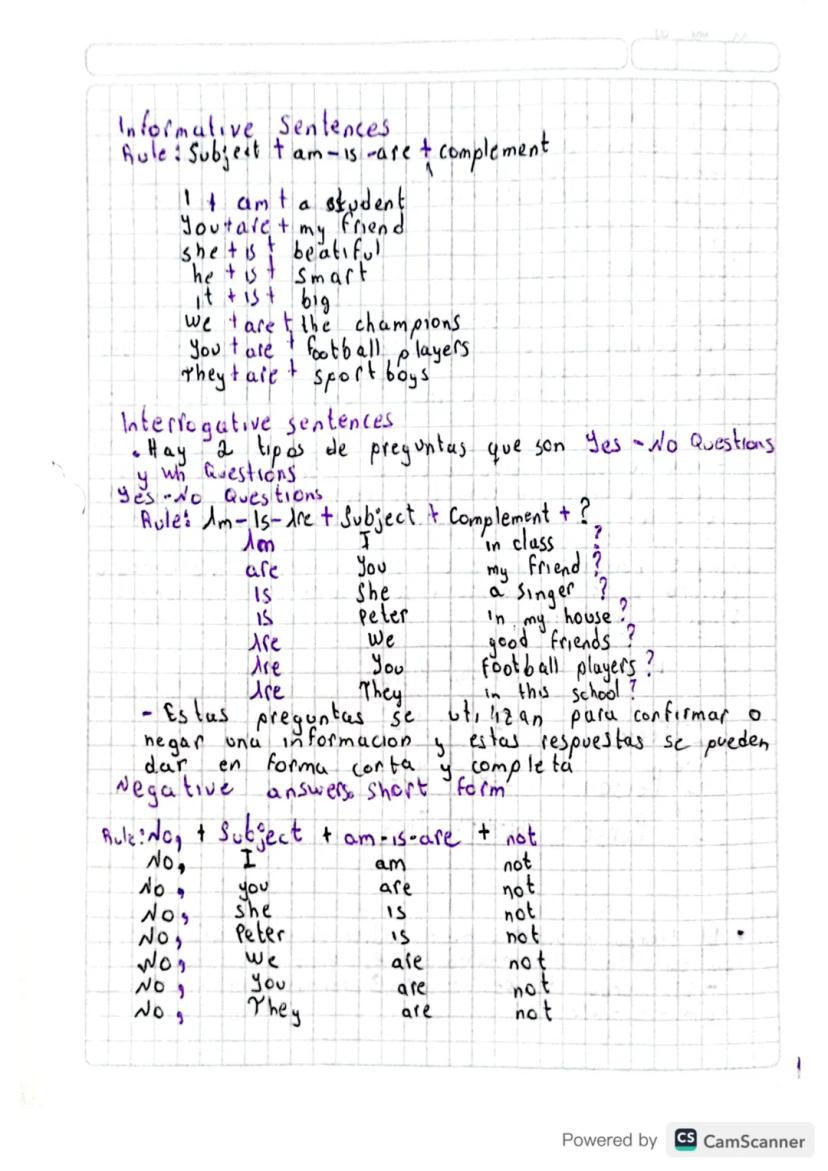 Informative Sentences
Rule: Subject + am-is-are + complement
I + am + a student
You + are + my friend
she + is + beatiful
he + is + smart
it + is + big
we + are + the champions
you + are + football players
They + are + sport boys
Interrogative sentences
• Hay 2 tipos de preguntas que son Yes-No Questions
y wh Questions
Yes-No Questions
Rule: Am-Is-Are + Subject + Complement + ?
Am I in class ?
are you my friend ?
is she a singer ?
is Peter in my house ?
Are we good friends ?
Are you football players ?
Are They in this school ?
- Estas preguntas se utilizan para confirmar o
negar una informacion y estas respuestas se pueden
dar en forma corta y completa
Negative answers short form
Rule: No, + Subject + am-is-are + not
No, I am not
No, you are not
No, she is not
No, Peter is not
No, we are not
No, you are not
No, They are not
Powered by CS CamScanner